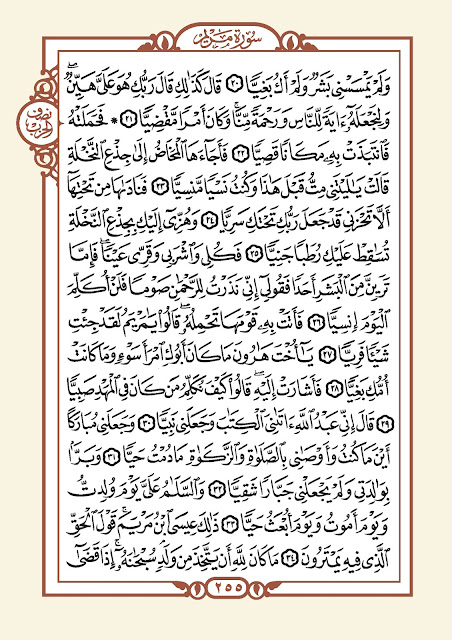 سُورَةُ مَرْيَمَ
وَلَمْ يَمْسَسْنِي بَشَرٌ وَلَمْ أَكُ بَغِيًّا ٢٠ قَالَ كَذَٰلِكِ قَالَ رَبُّكِ هُوَ عَلَيَّ هَيِّنٌۖ
وَلِنَجْعَلَهُۥٓ ءَايَةً لِّلنَّاسِ وَرَحْمَةً مِّنَّاۚ وَكَانَ أَمْرًا مَّقْضِيًّا ٢١ * فَحَمَلَتْهُ
فَٱنتَبَذَتْ بِهِۦ مَكَانًا قَصِيًّا ٢٢ فَأَجَآءَهَا ٱلْمَخَاضُ إِلَىٰ جِذْعِ ٱلنَّخْلَةِ
قَالَتْ يَٰلَيْتَنِي مِتُّ قَبْلَ هَٰذَا وَكُنتُ نَسْيًا مَّنسِيًّا ٢٣ فَنَادَىٰهَا مِن تَحْتِهَآ
أَلَّا تَحْزَنِي قَدْ جَعَلَ رَبُّكِ تَحْتَكِ سَرِيًّا ٢٤ وَهُزِّيٓ إِلَيْكِ بِجِذْعِ ٱلنَّخْلَةِ
تُسَٰقِطْ عَلَيْكِ رُطَبًا جَنِيًّا ٢٥ فَكُلِي وَٱشْرَبِي وَقَرِّي عَيْنًاۖ فَإِمَّا
تَرَيِنَّ مِنَ ٱلْبَشَرِ أَحَدًا فَقُولِيٓ إِنِّي نَذَرْتُ لِلرَّحْمَٰنِ صَوْمًا فَلَنْ أُكَلِّمَ
ٱلْيَوْمَ إِنسِيًّا ٢٦ فَأَتَتْ بِهِۦ قَوْمَهَا تَحْمِلُهُۥۖ قَالُوا۟ يَٰمَرْيَمُ لَقَدْ جِئْتِ
شَيْـًٔا فَرِيًّا ٢٧ يَٰٓأُخْتَ هَٰرُونَ مَا كَانَ أَبُوكِ ٱمْرَأَ سَوْءٍ وَمَا كَانَتْ
أُمُّكِ بَغِيًّا ٢٨ فَأَشَارَتْ إِلَيْهِۖ قَالُوا۟ كَيْفَ نُكَلِّمُ مَن كَانَ فِي ٱلْمَهْدِ صَبِيًّا
٢٩ قَالَ إِنِّي عَبْدُ ٱللَّهِ ءَاتَىٰنِيَ ٱلْكِتَٰبَ وَجَعَلَنِي نَبِيًّا ٣٠ وَجَعَلَنِي مُبَارَكًا
أَيْنَ مَا كُنتُ وَأَوْصَٰنِي بِٱلصَّلَوٰةِ وَٱلزَّكَوٰةِ مَا دُمْتُ حَيًّا ٣١ وَبَرًّۢا
بِوَٰلِدَتِي وَلَمْ يَجْعَلْنِي جَبَّارًا شَقِيًّا ٣٢ وَٱلسَّلَٰمُ عَلَيَّ يَوْمَ وُلِدتُّ
وَيَوْمَ أَمُوتُ وَيَوْمَ أُبْعَثُ حَيًّا ٣٣ ذَٰلِكَ عِيسَى ٱبْنُ مَرْيَمَۚ قَوْلَ ٱلْحَقِّ
ٱلَّذِي فِيهِ يَمْتَرُونَ ٣٤ مَا كَانَ لِلَّهِ أَن يَتَّخِذَ مِن وَلَدٍۖ سُبْحَٰنَهُۥٓۚ إِذَا قَضَىٰٓ
نصف
الحزب
٢٥٥